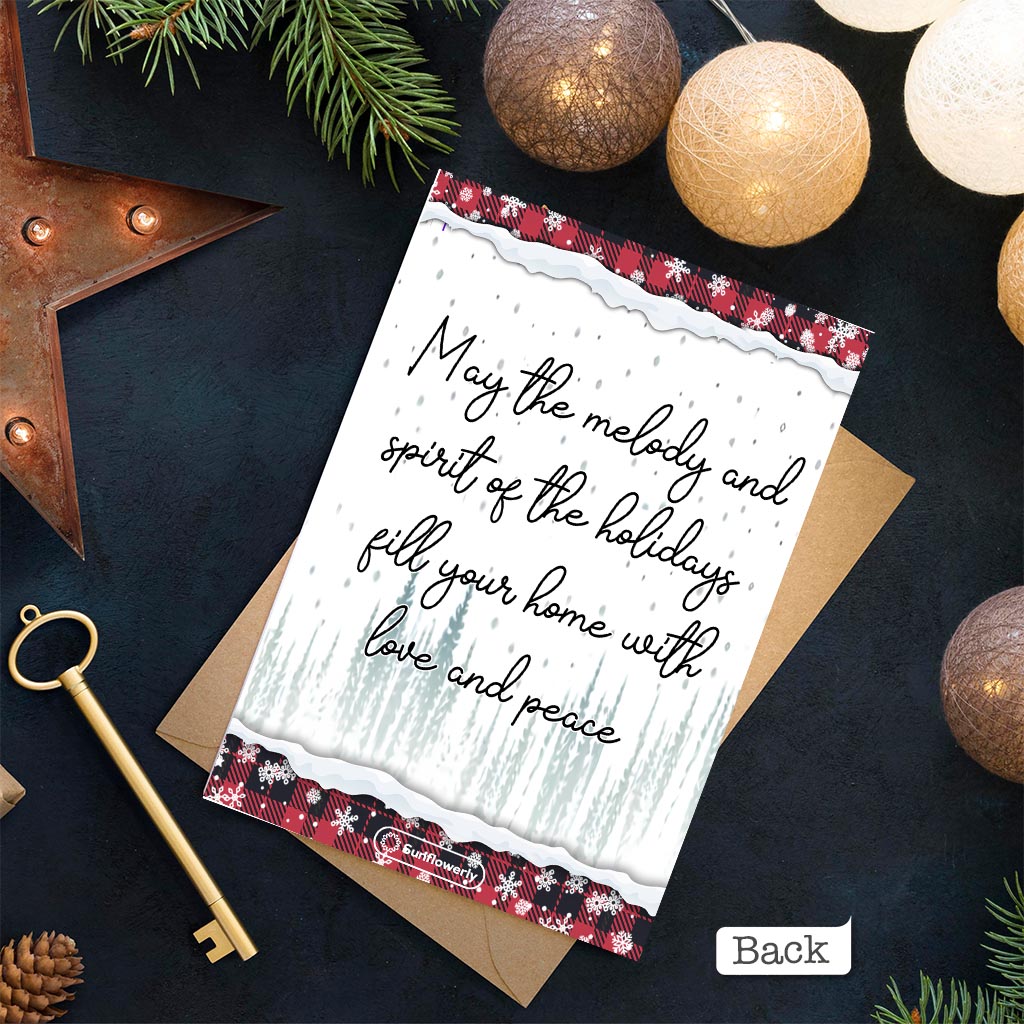 May the melody and
spirit of the holidays
fill your home with
love and peace
Sunflowerly
Back